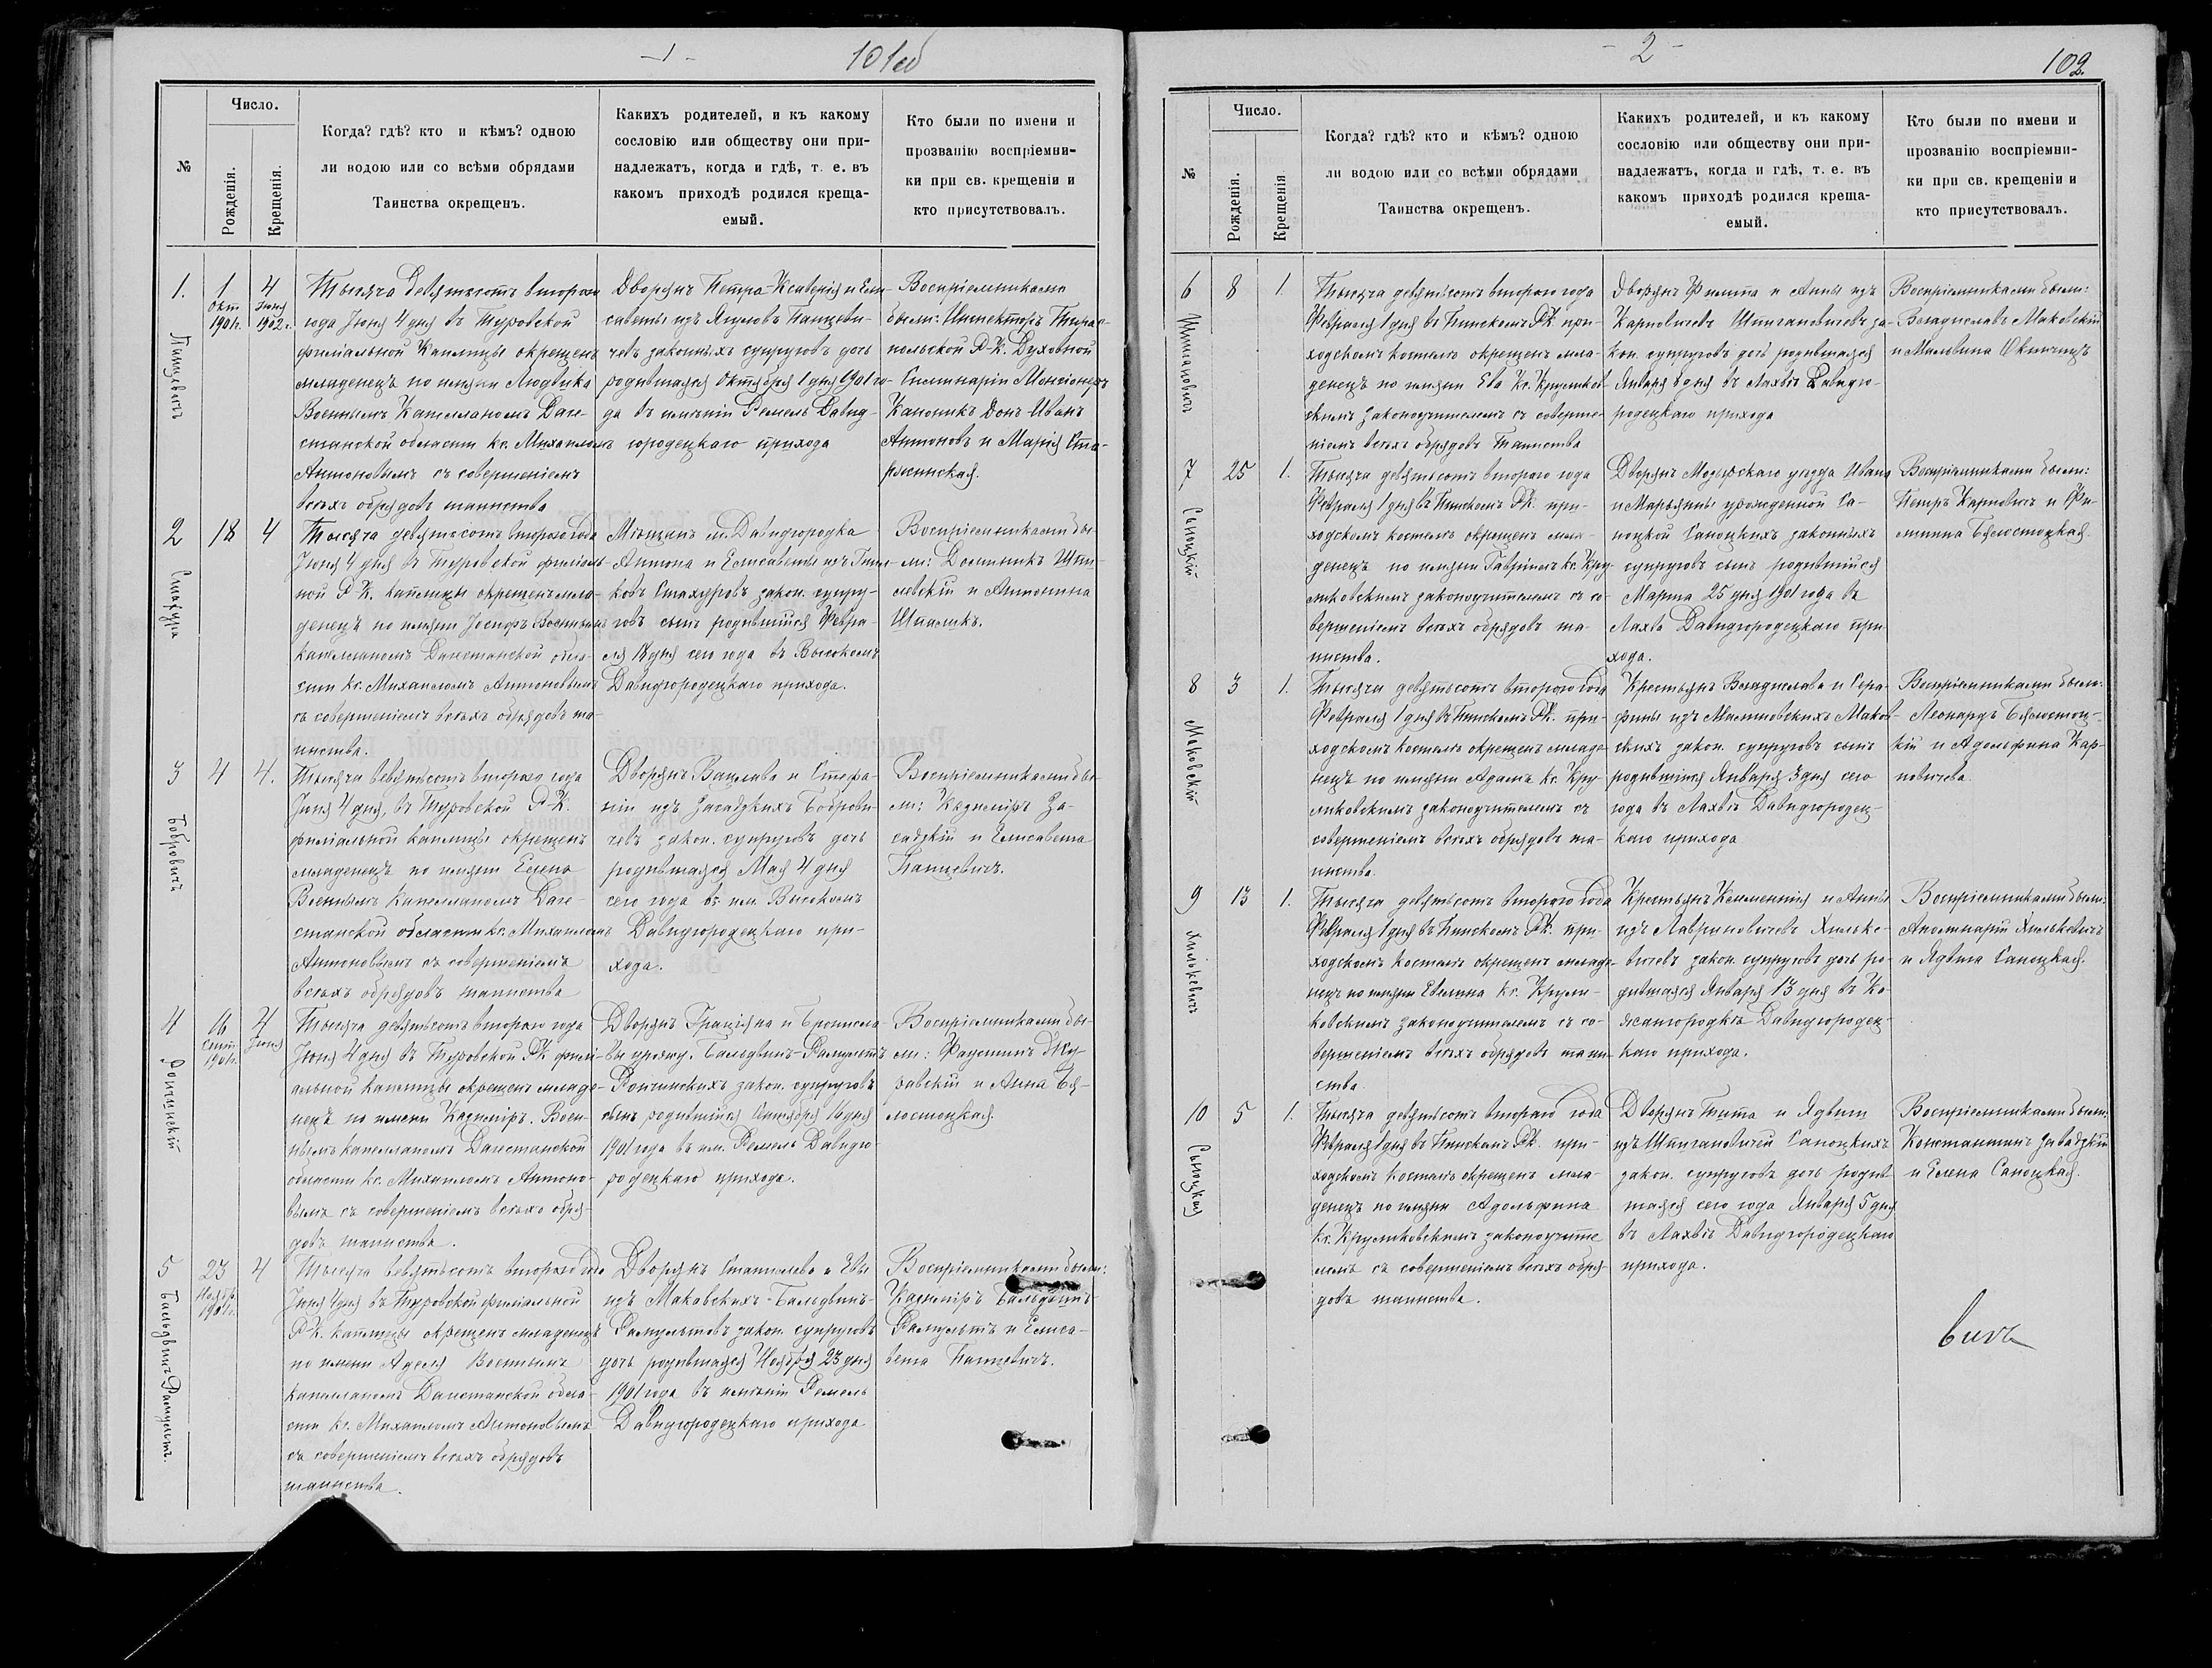 - 1 -
101об
№
Число.
Рожденія.
Крещенія.
Когда? гдѣ? кто и кѣмъ? одною
ли водою или со всѣми обрядами
Таинства окрещенъ.
Какихъ родителей, и къ какому
сословію или обществу они при-
надлежатъ, когда и гдѣ, т. е. въ
какомъ приходѣ родился креща-
емый.
Кто были по имени и
прозванію воспріемни-
ки при св. крещеніи и
кто присутствовалъ.
1.
Пащевичъ
1
Окт.
1901г.
4
Іюня
1902г.
Тысяча девятьсотъ второго
года Іюня 4 дня въ Туровской
филіальной каплицы окрещенъ
младенецъ по имени Людвика
Военнымъ Капелланомъ Даге-
станской области кс. Михаиломъ
Антоновымъ съ совершеніемъ
всѣхъ обрядовъ таинства
Дворянъ Петра-Ксаверія и Ели-
саветы изъ
чевъ законныхъ супруговъ дочь
родившаяся Октября 1 дня 1901 го-
да въ имѣніи Ремель Давид-
городецкаго прихода
Воспріемниками
были: Инспекторъ Тирас-
польской Р-К. Духовной
Семинаріи
Каноникъ Донъ Иванъ
Антоновъ и Марія
2
Стахура
18
4
Тысяча девятьсотъ второго года
Іюня 4 дня въ Туровской филіаль-
ной Р-К. каплицы окрещенъ мла-
денецъ по имени Іосифъ Военнымъ
капелланомъ Дагестанской обла-
сти кс. Михаиломъ Антоновымъ
съ совершеніемъ всѣхъ обрядовъ та-
инства.
Мѣщанъ м. Давидгородка
Антона и Елисаветы изъ
ковъ Стахуровъ закон. супру-
говъ сынъ родившійся Февра-
ля 18 дня сего года въ Высокомъ
Давидгородецкаго прихода.
Воспріемниками бы-
ли: Доминикъ
левскій и Антонина
3
Бобровичъ
4
4.
Тысяча девятьсотъ второго года
Іюня 4 дня, въ Туровской Р-К.
филіальной каплицы окрещенъ
младенецъ по имени Елена
Военнымъ Капелланомъ Даге-
станской области кс. Михаиломъ
Антоновымъ съ совершеніемъ
всѣхъ обрядовъ таинства
Дворянъ Вацлава и Стефа-
ніи изъ Засадзкихъ Боброви-
чевъ закон. супруговъ дочь
родившаяся Мая 4 дня
сего года въ им. Высокомъ
Давидгородецкаго при-
хода.
Воспріемниками бы-
ли: Казиміръ За-
садзкій и Елисавета
Пащевичъ.
4
Рончинскій
16
Сент.
1901г.
4
Іюня
Тысяча девятьсотъ второго года
Іюня 4 дня въ Туровской РК фили-
альной каплицы окрещенъ младе-
нецъ по имени Казиміръ. Воен-
нымъ капелланомъ Дагестанской
области кс. Михаиломъ Антоно-
вымъ съ совершеніемъ всѣхъ обря-
довъ таинства.
Дворянъ Граціяна и Брониславы
урожд. Бальдвинъ-Рамультъ
Рончинскихъ закон. супруговъ
сынъ родившійся Сентября 16 дня
1901 года въ им. Ремель Давидго-
родецкаго прихода.
Воспріемниками бы-
ли: Фаустинъ
и Анна Бя-
лостоцкая.
5
Бальдвинъ-Рамультъ.
23
Ноябр.
1901г.
4
Тысяча девятьсотъ второго года
Іюня 4 дня въ Туровской филіальной
Р-К. каплицы окрещенъ младенецъ
по имени Аделя Военнымъ
капелланомъ Дагестанской обла-
сти кс. Михаиломъ Антоновымъ
съ совершеніемъ всѣхъ обрядовъ
таинства.
Дворянъ Станислава и Евы
изъ Маковскихъ-Бальдвинъ-
Рамультовъ закон. супруговъ
дочь родившаяся Ноября 23 дня
1901 года въ имѣніи Ремель
Давидгородецкаго прихода
Воспріемниками были:
Казиміръ Бальдвинъ-
Рамультъ и Елиса-
вета Пащевичъ.
- 2 -
102.
№
Число.
Рожденія.
Крещенія.
Когда? гдѣ? кто и кѣмъ? одною
ли водою или со всѣми обрядами
Таинства окрещенъ.
Какихъ родителей, и къ какому
сословію или обществу они при-
надлежатъ, когда и гдѣ, т. е. въ
какомъ приходѣ родился креща-
емый.
Кто были по имени и
прозванію воспріемни-
ки при св. крещеніи и
кто присутствовалъ.
6
Шпигановичъ
8
1.
Тысяча девятьсотъ второго года
Февраля 1 дня въ Пинскомъ РК. при-
ходскомъ костелѣ окрещенъ мла-
денецъ по имени Ева Кс. Круликов-
скимъ законоучителемъ съ соверше-
ніемъ всѣхъ обрядовъ Таинства
Дворянъ Филиппа и Анны изъ
Карповичевъ Шпигановичевъ за-
кон. супруговъ дочь родившаяся
Января 8 дня въ Лахвѣ Давидго-
родецкаго прихода
Воспріемниками были:
Владиславъ Маковскій
и Мальвина
7
Саноцкій
25
1.
Тысяча девятьсотъ второго года
Февраля 1 дня въ Пинскомъ РК. при-
ходскомъ костелѣ окрещенъ мла-
денецъ по имени Гавріилъ кс. Кру-
ликовскимъ законоучителемъ съ со-
вершеніемъ всѣхъ обрядовъ та-
инства.
Дворянъ Мозырскаго уѣзда Ивана
и Марьянны урожденной Са-
ноцкой Саноцкихъ законныхъ
супруговъ сынъ родившійся
Марта 25 дня 1901 года въ
Лахвѣ Давидгородецкаго при-
хода.
Воспріемниками были:
Петръ Карповичъ и
Бялостоцкая.
8
Маковскій
3
1.
Тысяча девятьсотъ второго года
Февраля 1 дня въ Пинскомъ РК. при-
ходскомъ костелѣ окрещенъ младе-
нецъ по имени Адамъ кс. Кру-
ликовскимъ законоучителемъ съ
совершеніемъ всѣхъ обрядовъ та-
инства.
Крестьянъ Владислава и Сера-
фины изъ Малиновскихъ Маков-
скихъ закон. супруговъ сынъ
родившійся Января 3 дня сего
года въ Лахвѣ Давидгородец-
каго прихода
Воспріемниками были:
Леонардъ Бялостоц-
кій и Адольфина Кар-
повичева.
9
Хилькевичъ
13
1.
Тысяча девятьсотъ второго года
Февраля 1 дня въ Пинскомъ РК. при-
ходскомъ костелѣ окрещенъ младе-
нецъ по имени Евелина кс. Крули-
ковскимъ законоучителемъ съ со-
вершеніемъ всѣхъ обрядовъ таин-
ства.
Крестьянъ Клементія и Анны
изъ Лавриновичевъ Хильке-
вичевъ закон. супруговъ дочь ро-
дившаяся Января 13 дня въ Ко-
жангородкѣ Давидгородец-
каго прихода.
Воспріемниками были:
Аполинарій Хилькевичъ
и Ядвига Саноцкая.
10
Саноцкая
5
1.
Тысяча девятьсотъ второго года
Февраля 1 дня въ Пинскомъ РК. при-
ходскомъ костелѣ окрещенъ мла-
денецъ по имени Адольфина
кс. Круликовскимъ законоучите-
лемъ съ совершеніемъ всѣхъ обря-
довъ таинства.
Дворянъ Тита и Ядвиги
изъ Шпигановичей Саноцкихъ
закон. супруговъ дочь родив-
шаяся сего года Января 5 дня
въ Лахвѣ Давидгородецкаго
прихода.
Воспріемниками были:
Константинъ Завадзкій
и Елена Саноцкая.